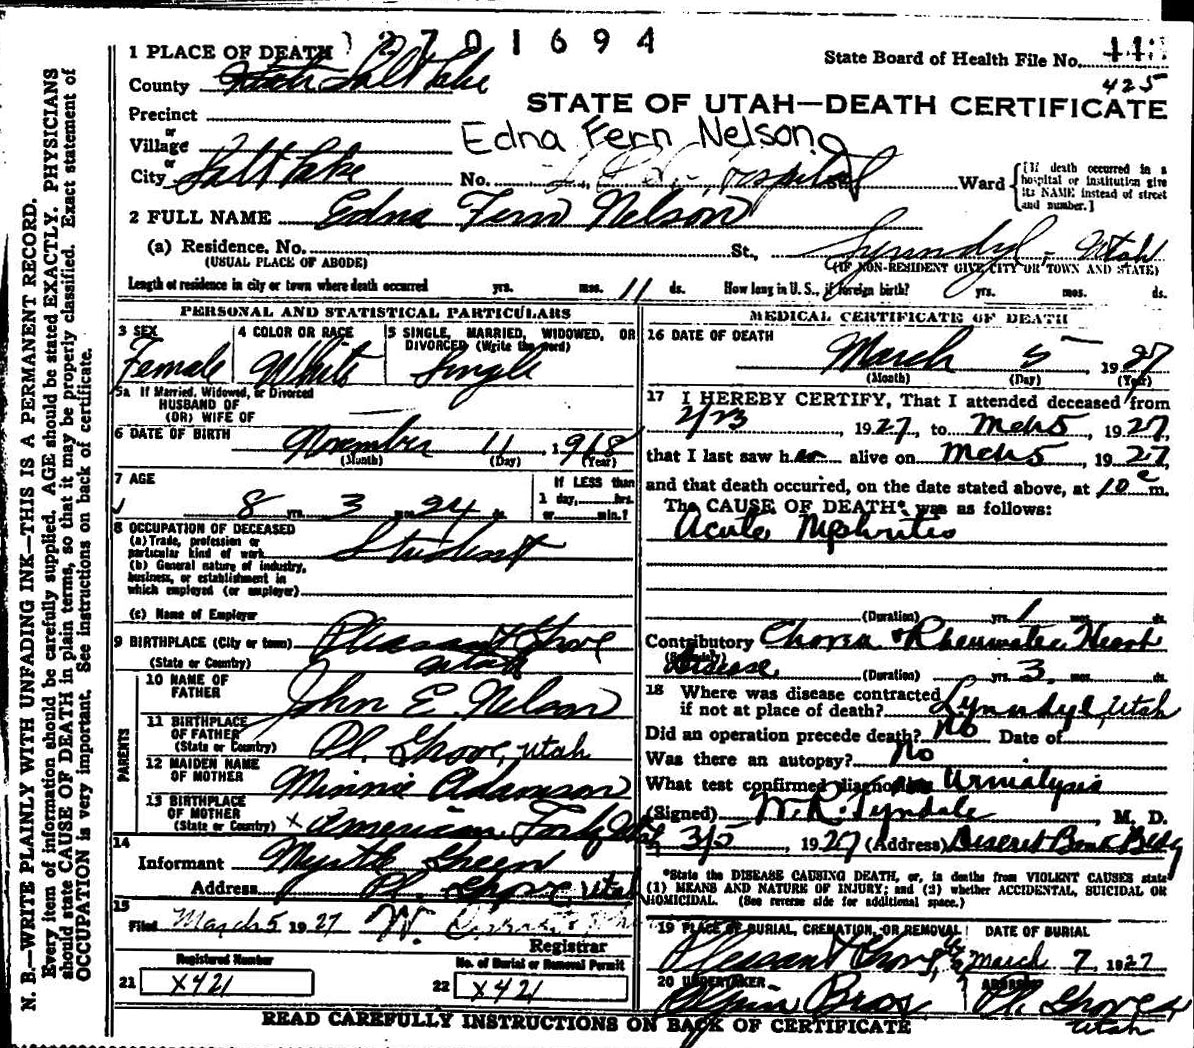 2701694
1 PLACE OF DEATH
State Board of Health File No.
425
County Salt Lake
STATE OF UTAH—DEATH CERTIFICATE
Precinct
or
Village
Edna Fern Nelson
or
City Salt Lake No. Hospital St. Ward
[If death occurred in a hospital or institution give its NAME instead of street and number.]
2 FULL NAME Edna Fern Nelson
(a) Residence. No. St., Lynndyl, Utah
(USUAL PLACE OF ABODE)
(IF NON-RESIDENT GIVE CITY OR TOWN AND STATE)
Length of residence in city or town where death occurred yrs. mos. 11 ds. How long in U. S., if foreign birth? yrs. mos. ds.
PERSONAL AND STATISTICAL PARTICULARS
3 SEX
Female
4 COLOR OR RACE
White
5 SINGLE, MARRIED, WIDOWED, OR DIVORCED (Write the word)
Single
5a If Married, Widowed, or Divorced
HUSBAND OF
(OR) WIFE OF
6 DATE OF BIRTH
November 11 1918
(Month) (Day) (Year)
7 AGE
8 yrs. 3 mos. 24 ds.
If LESS than
1 day, hrs.
or min.?
8 OCCUPATION OF DECEASED
(a) Trade, profession or
particular kind of work Student
(b) General nature of industry,
business, or establishment in
which employed (or employer)
(c) Name of Employer
9 BIRTHPLACE (City or town) Pleasant Grove
(State or Country) Utah
PARENTS
10 NAME OF
FATHER John E. Nelson
11 BIRTHPLACE
OF FATHER
(State or Country) Pl. Grove, Utah
12 MAIDEN NAME
OF MOTHER Minnie Adamson
13 BIRTHPLACE
OF MOTHER
(State or Country) x American Fork, Utah
14
Informant Myrtle Green
Address Pl. Grove, Utah
15
Filed March 5 1927 W.
Registrar
Registered Number
21 X421
No. of Burial or Removal Permit
22 X421
MEDICAL CERTIFICATE OF DEATH
16 DATE OF DEATH
March 5 1927
(Month) (Day) (Year)
17 I HEREBY CERTIFY, That I attended deceased from
2/23, 1927, to Mch 5, 1927,
that I last saw her alive on Mch 5, 1927,
and that death occurred, on the date stated above, at 10 m.
The CAUSE OF DEATH* was as follows:
Acute Nephritis
(Duration) yrs. 1 mos. ds.
Contributory Chorea & Rheumatic Heart
Disease (Duration) yrs. 3 mos. ds.
18 Where was disease contracted
if not at place of death? Lynndyl, Utah
Did an operation precede death? No Date of
Was there an autopsy? No
What test confirmed diagnosis? Urinalysis
(Signed) W. R. Tyndale, M. D.
3/5 1927 (Address) Deseret Bank Bldg
*State the DISEASE CAUSING DEATH, or, in deaths from VIOLENT CAUSES state
(1) MEANS AND NATURE OF INJURY; and (2) whether ACCIDENTAL, SUICIDAL OR
HOMICIDAL. (See reverse side for additional space.)
19 PLACE OF BURIAL, CREMATION, OR REMOVAL
Pleasant Grove
DATE OF BURIAL
March 7, 1927
20 UNDERTAKER
Bros.
ADDRESS
Pl. Grove
Utah
READ CAREFULLY INSTRUCTIONS ON BACK OF CERTIFICATE
N. B.—WRITE PLAINLY WITH UNFADING INK—THIS IS A PERMANENT RECORD.
Every item of information should be carefully supplied. AGE should be stated EXACTLY. PHYSICIANS
should state CAUSE OF DEATH in plain terms, so that it may be properly classified. Exact statement of
OCCUPATION is very important. See instructions on back of certificate.